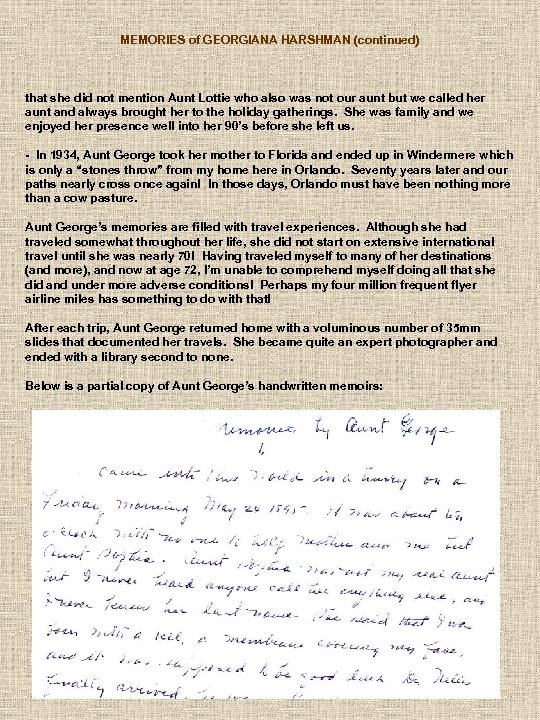 MEMORIES of GEORGIANA HARSHMAN (continued)
that she did not mention Aunt Lottie who also was not our aunt but we called her
aunt and always brought her to the holiday gatherings. She was family and we
enjoyed her presence well into her 90's before she left us.
- In 1934, Aunt George took her mother to Florida and ended up in Windermere which
is only a “stones throw” from my home here in Orlando. Seventy years later and our
paths nearly cross once again! In those days, Orlando must have been nothing more
than a cow pasture.
Aunt George's memories are filled with travel experiences. Although she had
traveled somewhat throughout her life, she did not start on extensive international
travel until she was nearly 70! Having traveled myself to many of her destinations
(and more), and now at age 72, I'm unable to comprehend myself doing all that she
did and under more adverse conditions! Perhaps my four million frequent flyer
airline miles has something to do with that!
After each trip, Aunt George returned home with a voluminous number of 35mm
slides that documented her travels. She became quite an expert photographer and
ended with a library second to none.
Below is a partial copy of Aunt George's handwritten memoirs:
Memories by Aunt George
came into this world in a hurry on a
Friday morning May 24 1895. It was about ten
o'clock with no one to help mother and me but
Aunt Sophia. Aunt Sophia was not my real aunt
but I never heard anyone call her anything else, and
I never knew her last name. She said that I was
born with a veil, a membrane covering my face,
and it was supposed to be good luck. Dr
finally arrived,